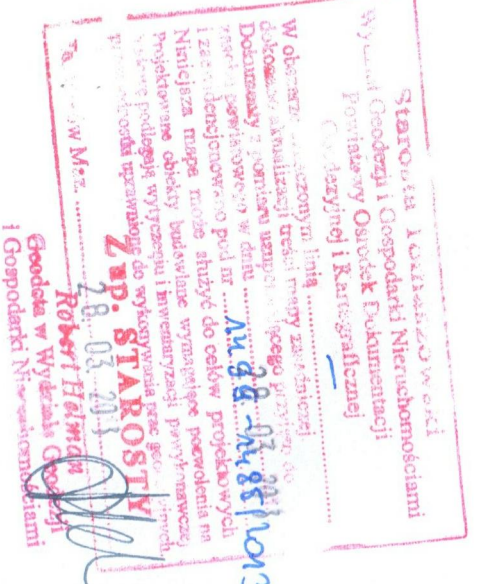 Starosta Tomaszowski
Wydział Geodezji i Gospodarki Nieruchomościami
Powiatowy Ośrodek Dokumentacji
Geodezyjnej i Kartograficznej
W obszarze oznaczonym linią
dokonano aktualizacji treści mapy zasadniczej
Dokumenty z pomiaru uzupełniającego przyjęto do
zasobu powiatowego w dniu 28 03
i zaewidencjonowano pod nr
Niniejsza mapa może służyć do celów projektowych
Projektowane obiekty budowlane wymagające pozwolenia na
podlegają wytyczeniu i inwentaryzacji powykonawczej
przez jednostki uprawnione do wykonywania prac
Maz. 28 03 2013
Z up. STAROSTY
Robert
Geodeta w Wydziale Geodezji
i Gospodarki Nieruchomościami